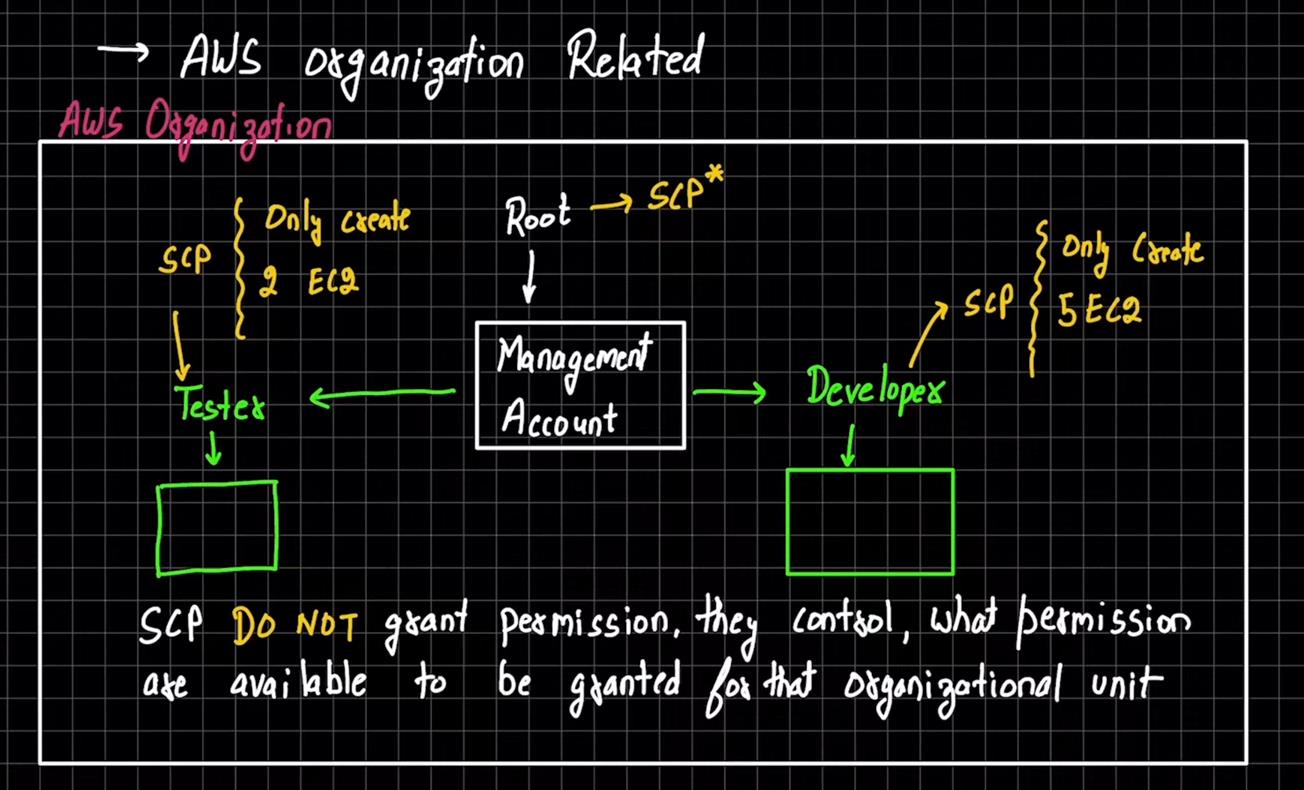 → AWS Organization Related
AWS Organization
SCP { Only Create
2 EC2
Root → SCP*
SCP { Only Create
5 EC2
Management
Account
Tester
Developer
SCP DO NOT grant permission, they control, what permission
are available to be granted for that organizational unit